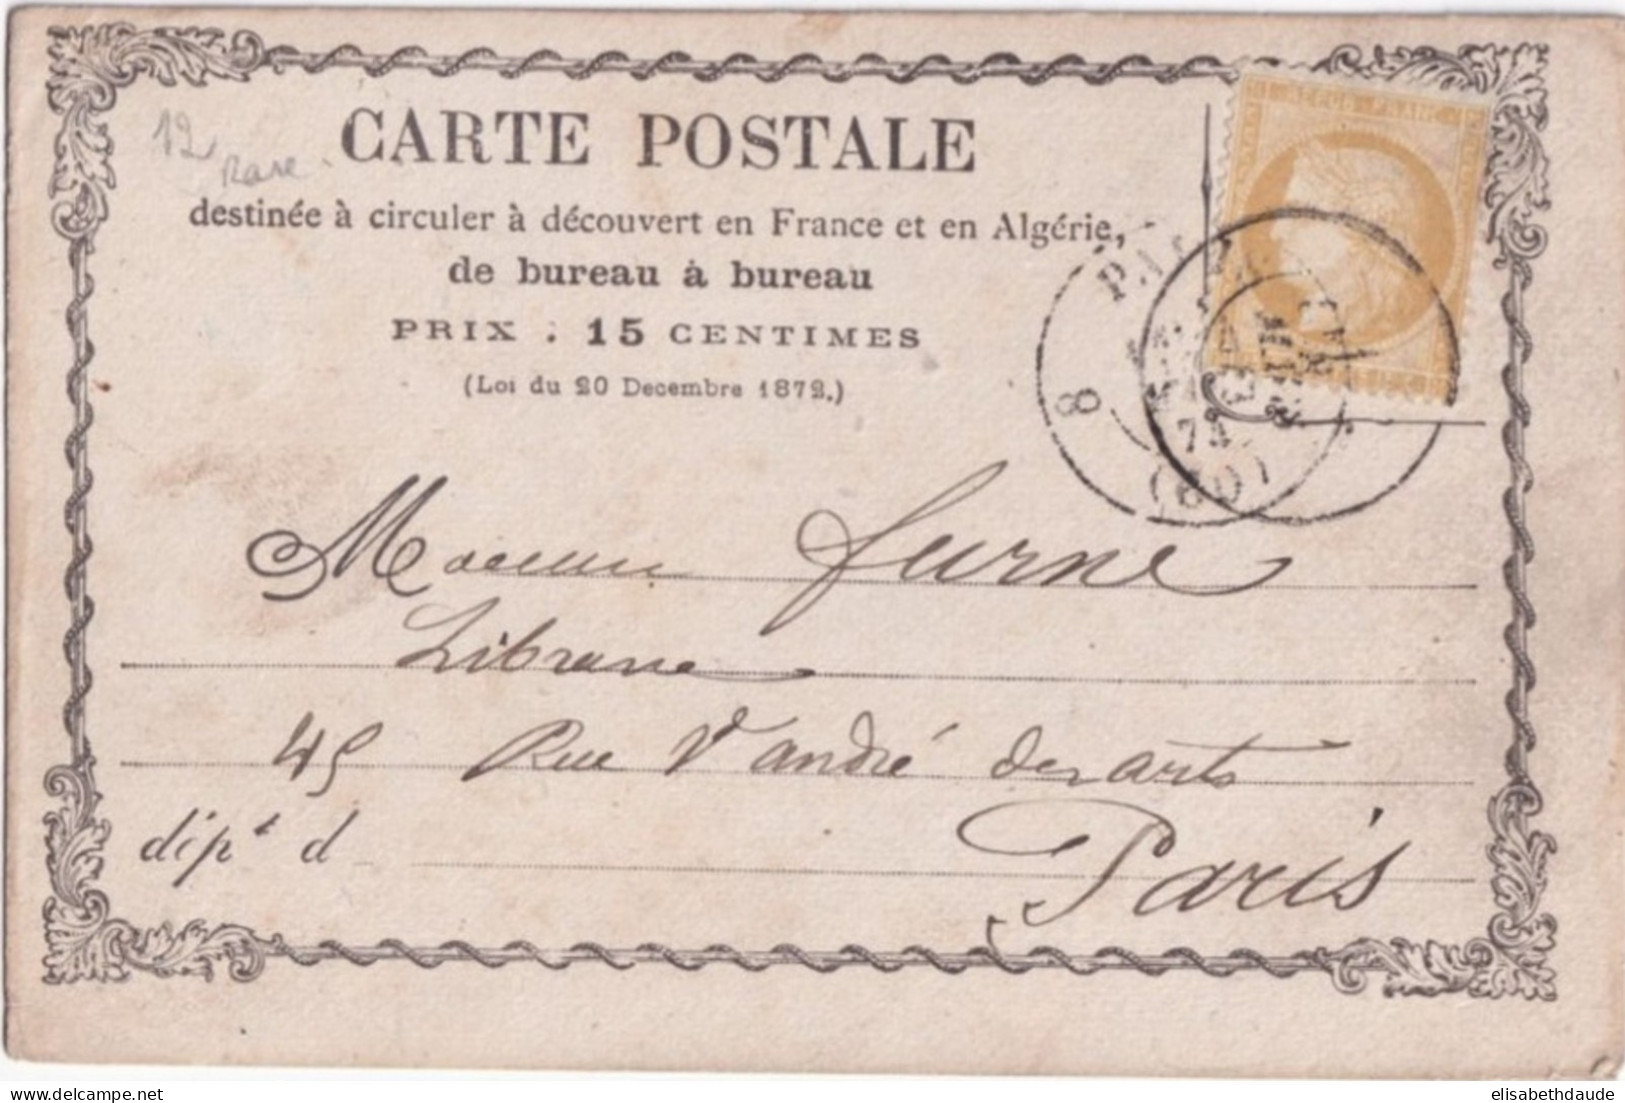 12
Rare
REPUB FRANC
CARTE POSTALE
destinée à circuler à découvert en France et en Algérie,
de bureau à bureau
PRIX . 15 CENTIMES
(Loi du 20 Decembre 1872.)
8
(60)
Monsieur furne
Libraire
45 Rue St andré des arts
dépt d Paris
elisabethdaude